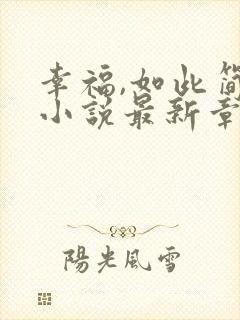 幸福,如此简
小说最新章
陽光風雪